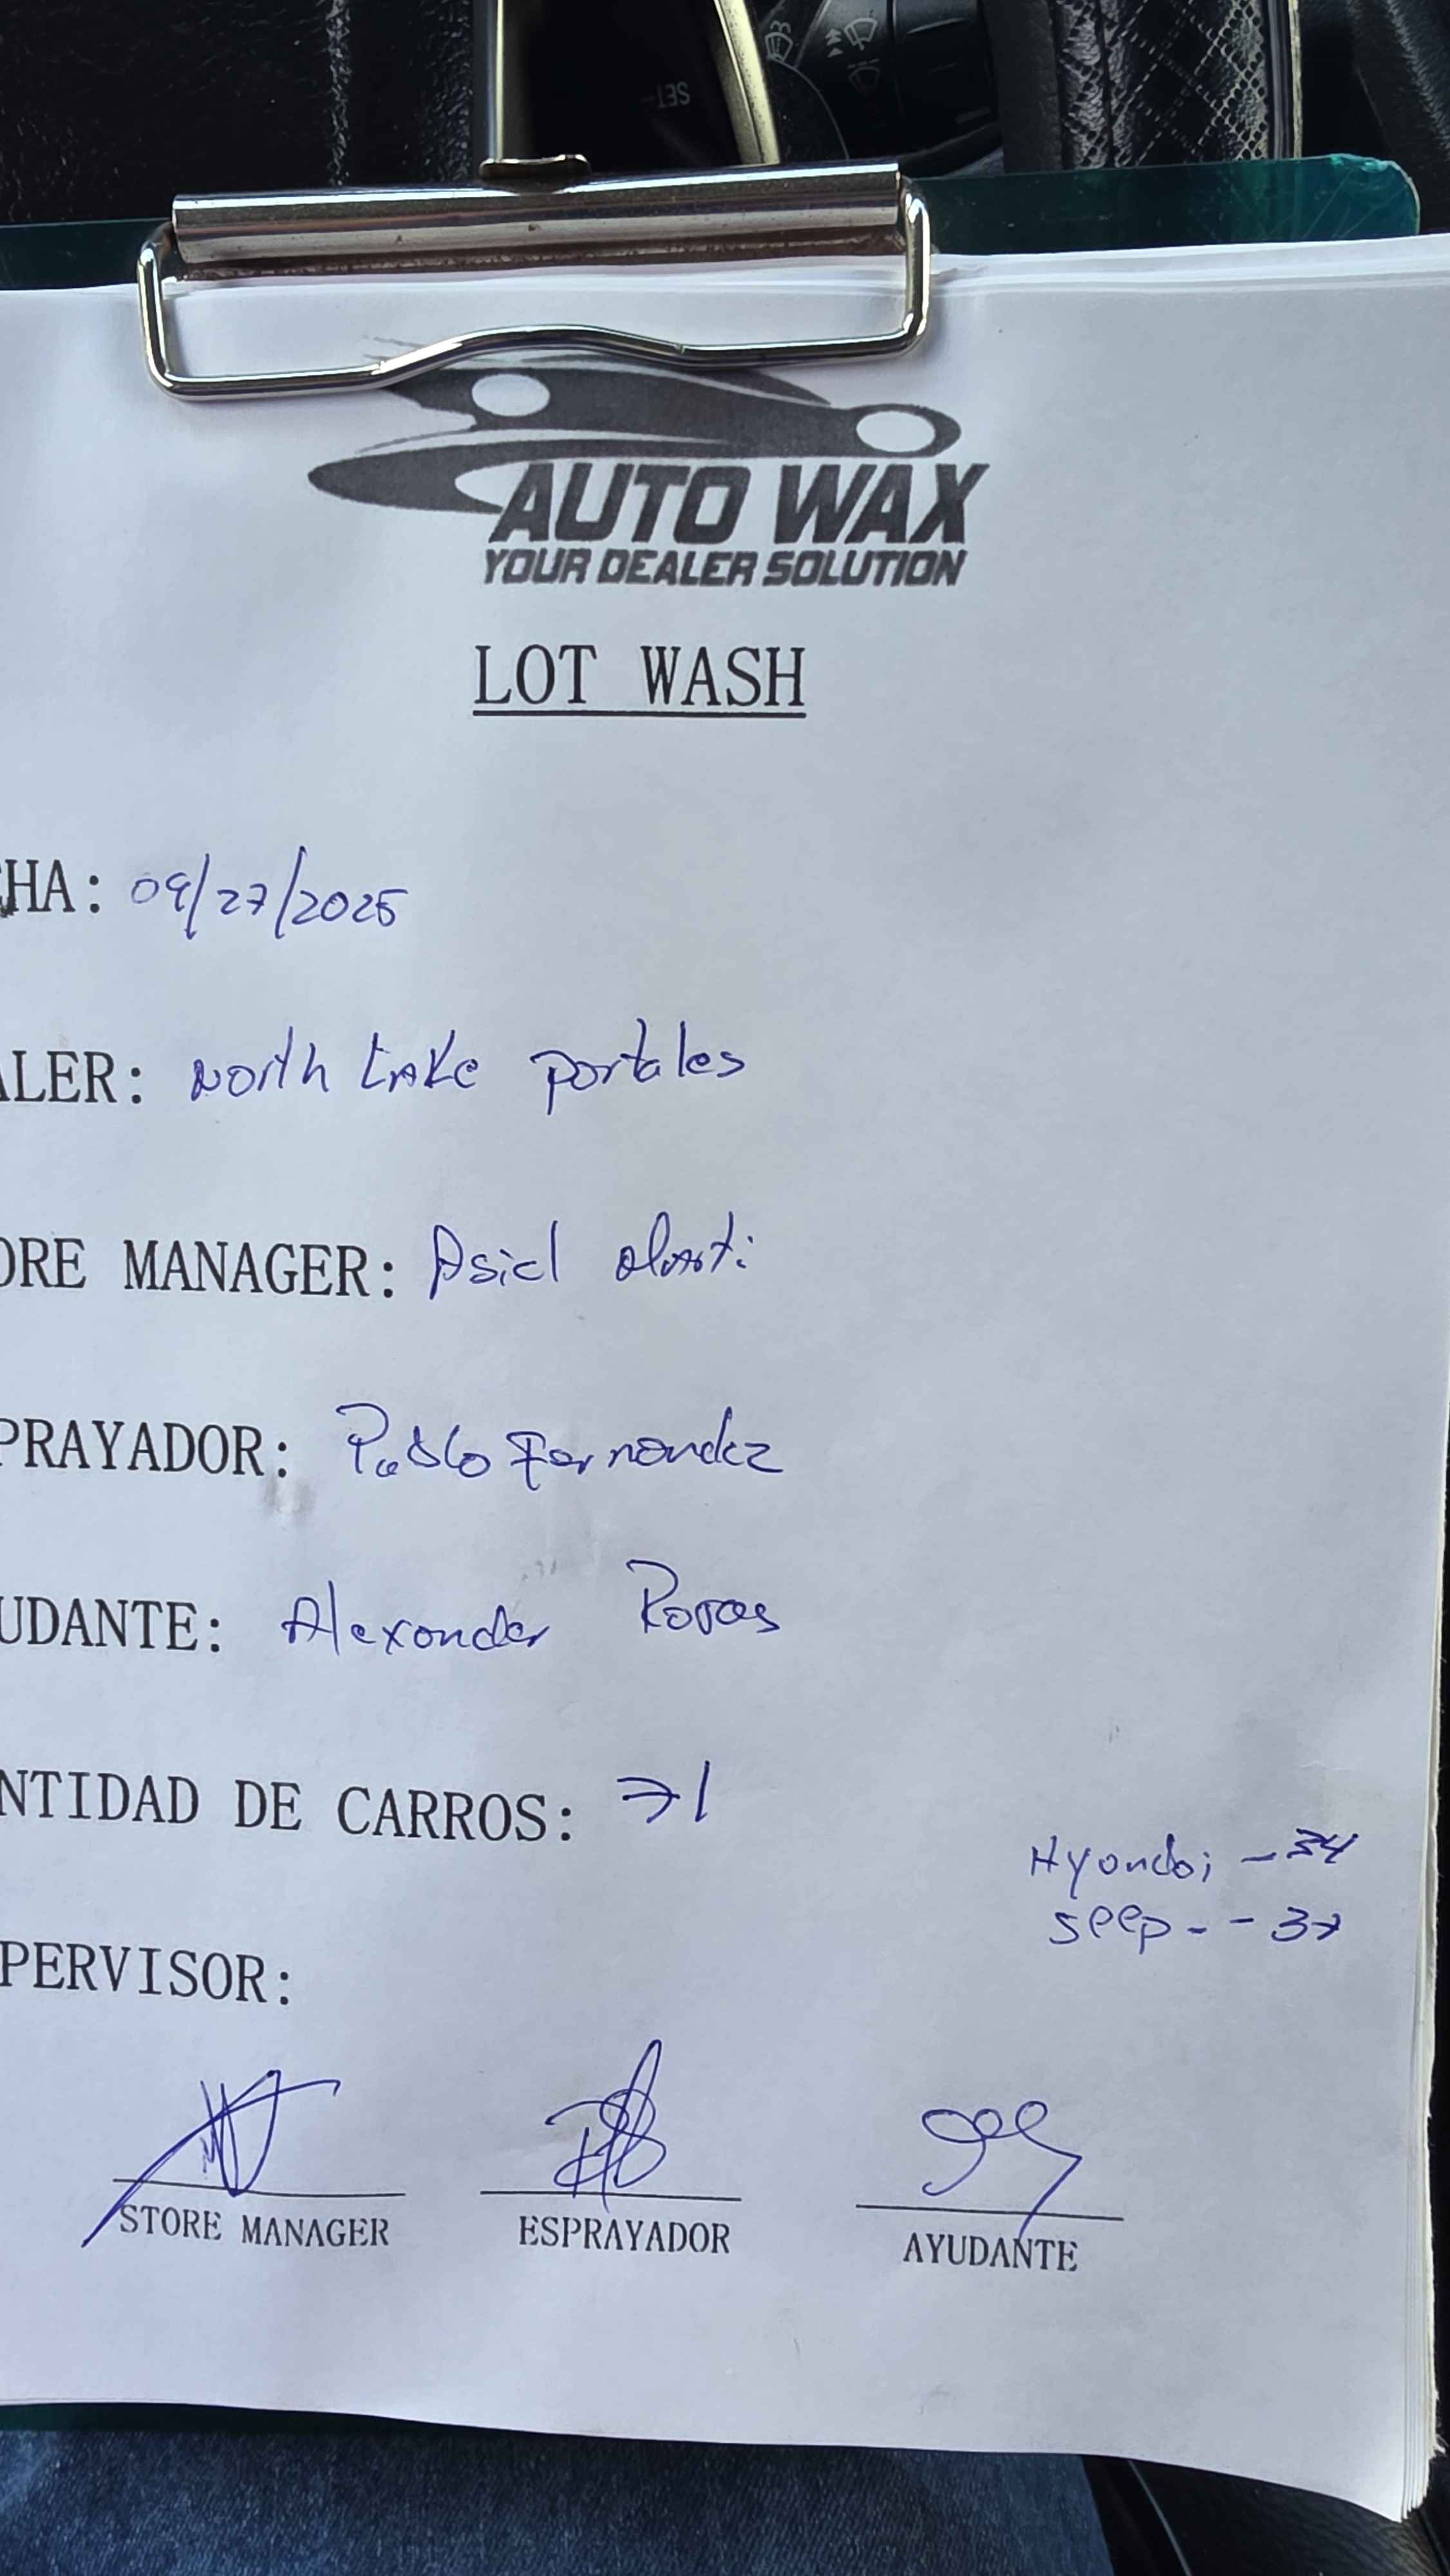 SET
AUTO WAX
YOUR DEALER SOLUTION
LOT WASH
HA: 09/27/2025
LER: North Lake portales
ORE MANAGER: Asiel
PRAYADOR: Pablo Fernandez
UDANTE: Alexander Rojas
NTIDAD DE CARROS: 71
Hyundai - 34
- - 37
PERVISOR:
STORE MANAGER
ESPRAYADOR
AYUDANTE